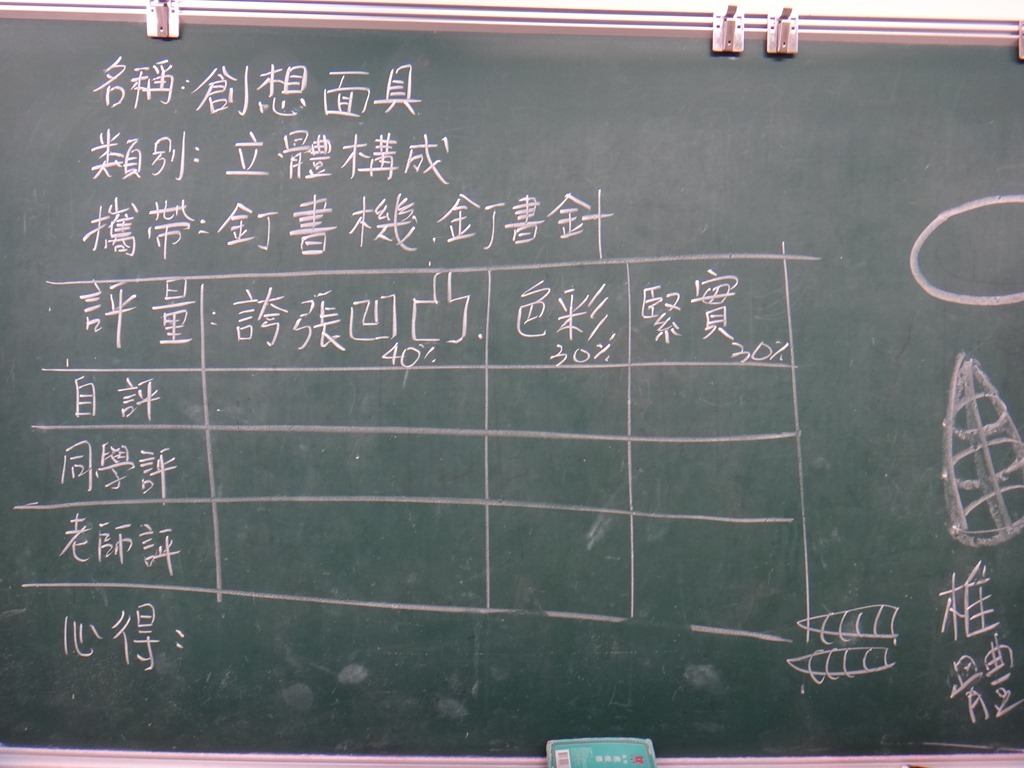 名稱:創想面具
類別:立體構成
攜帶:釘書機.釘書針
評量:誇張凹凸.40% 色彩30% 緊實30%
自評
同學評
老師評
心得:
椎體